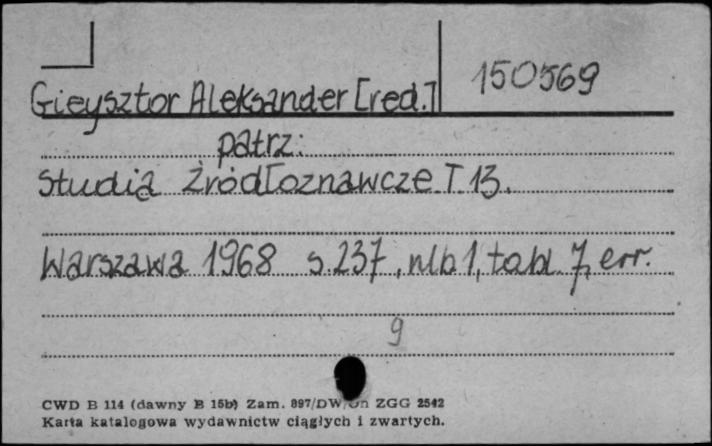 Gieysztor Aleksander [red.] 150569
patrz:
Studia Źródłoznawcze T. 13.
Warszawa 1968 s. 237, nlb 1, tabl. 7, err.
9
CWD B 114 (dawny B 15b) Zam. 897/DW/ ZGG 2542
Karta katalogowa wydawnictw ciągłych i zwartych.